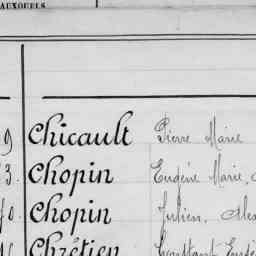 AUXQUELS
9 Chicault Pierre Marie
3. Chopin Eugène Marie,
0. Chopin Julien, Alex
Chrétien Constant Eugè